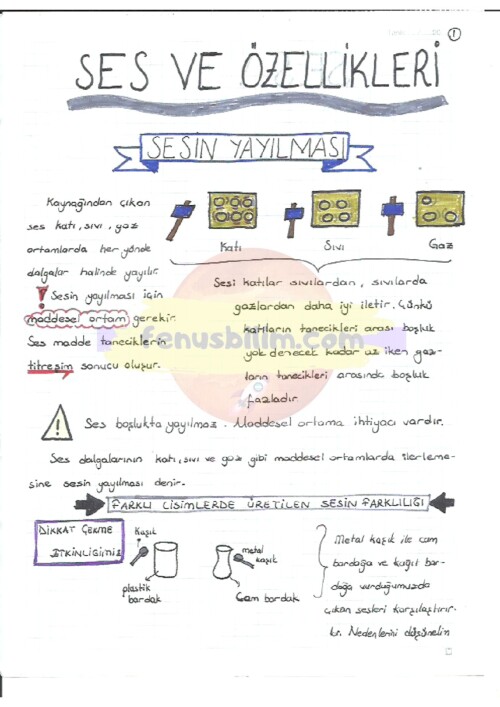 1
SES VE ÖZELLİKLERİ
SESİN YAYILMASI
Kaynağından çıkan
ses katı, sıvı, gaz
ortamlarda her yönde
dalgalar halinde yayılır.
Sesin yayılması için
maddesel ortam gerekir.
Ses madde taneciklerin
titreşim sonucu oluşur.
Katı Sıvı Gaz
Sesi katılar sıvılardan, sıvılarda
gazlardan daha iyi iletir. Çünkü
katıların tanecikleri arası boşluk
yok denecek kadar az iken gaz-
ların tanecikleri arasında boşluk
fazladır.
fenusbilim.com
Ses boşlukta yayılmaz. Maddesel ortama ihtiyacı vardır.
Ses dalgalarının katı, sıvı ve gaz gibi maddesel ortamlarda ilerleme-
sine sesin yayılması denir.
FARKLI CİSİMLERDE ÜRETİLEN SESİN FARKLILIĞI
DİKKAT ÇEKME
ETKİNLİĞİMİZ
Kaşık
plastik
bardak
metal
kaşık
Cam bardak
Metal kaşık ile cam
bardağa ve kağıt bar-
dağa vurduğumuzda
çıkan sesleri karşılaştırır-
Nedenlerini düşünelim